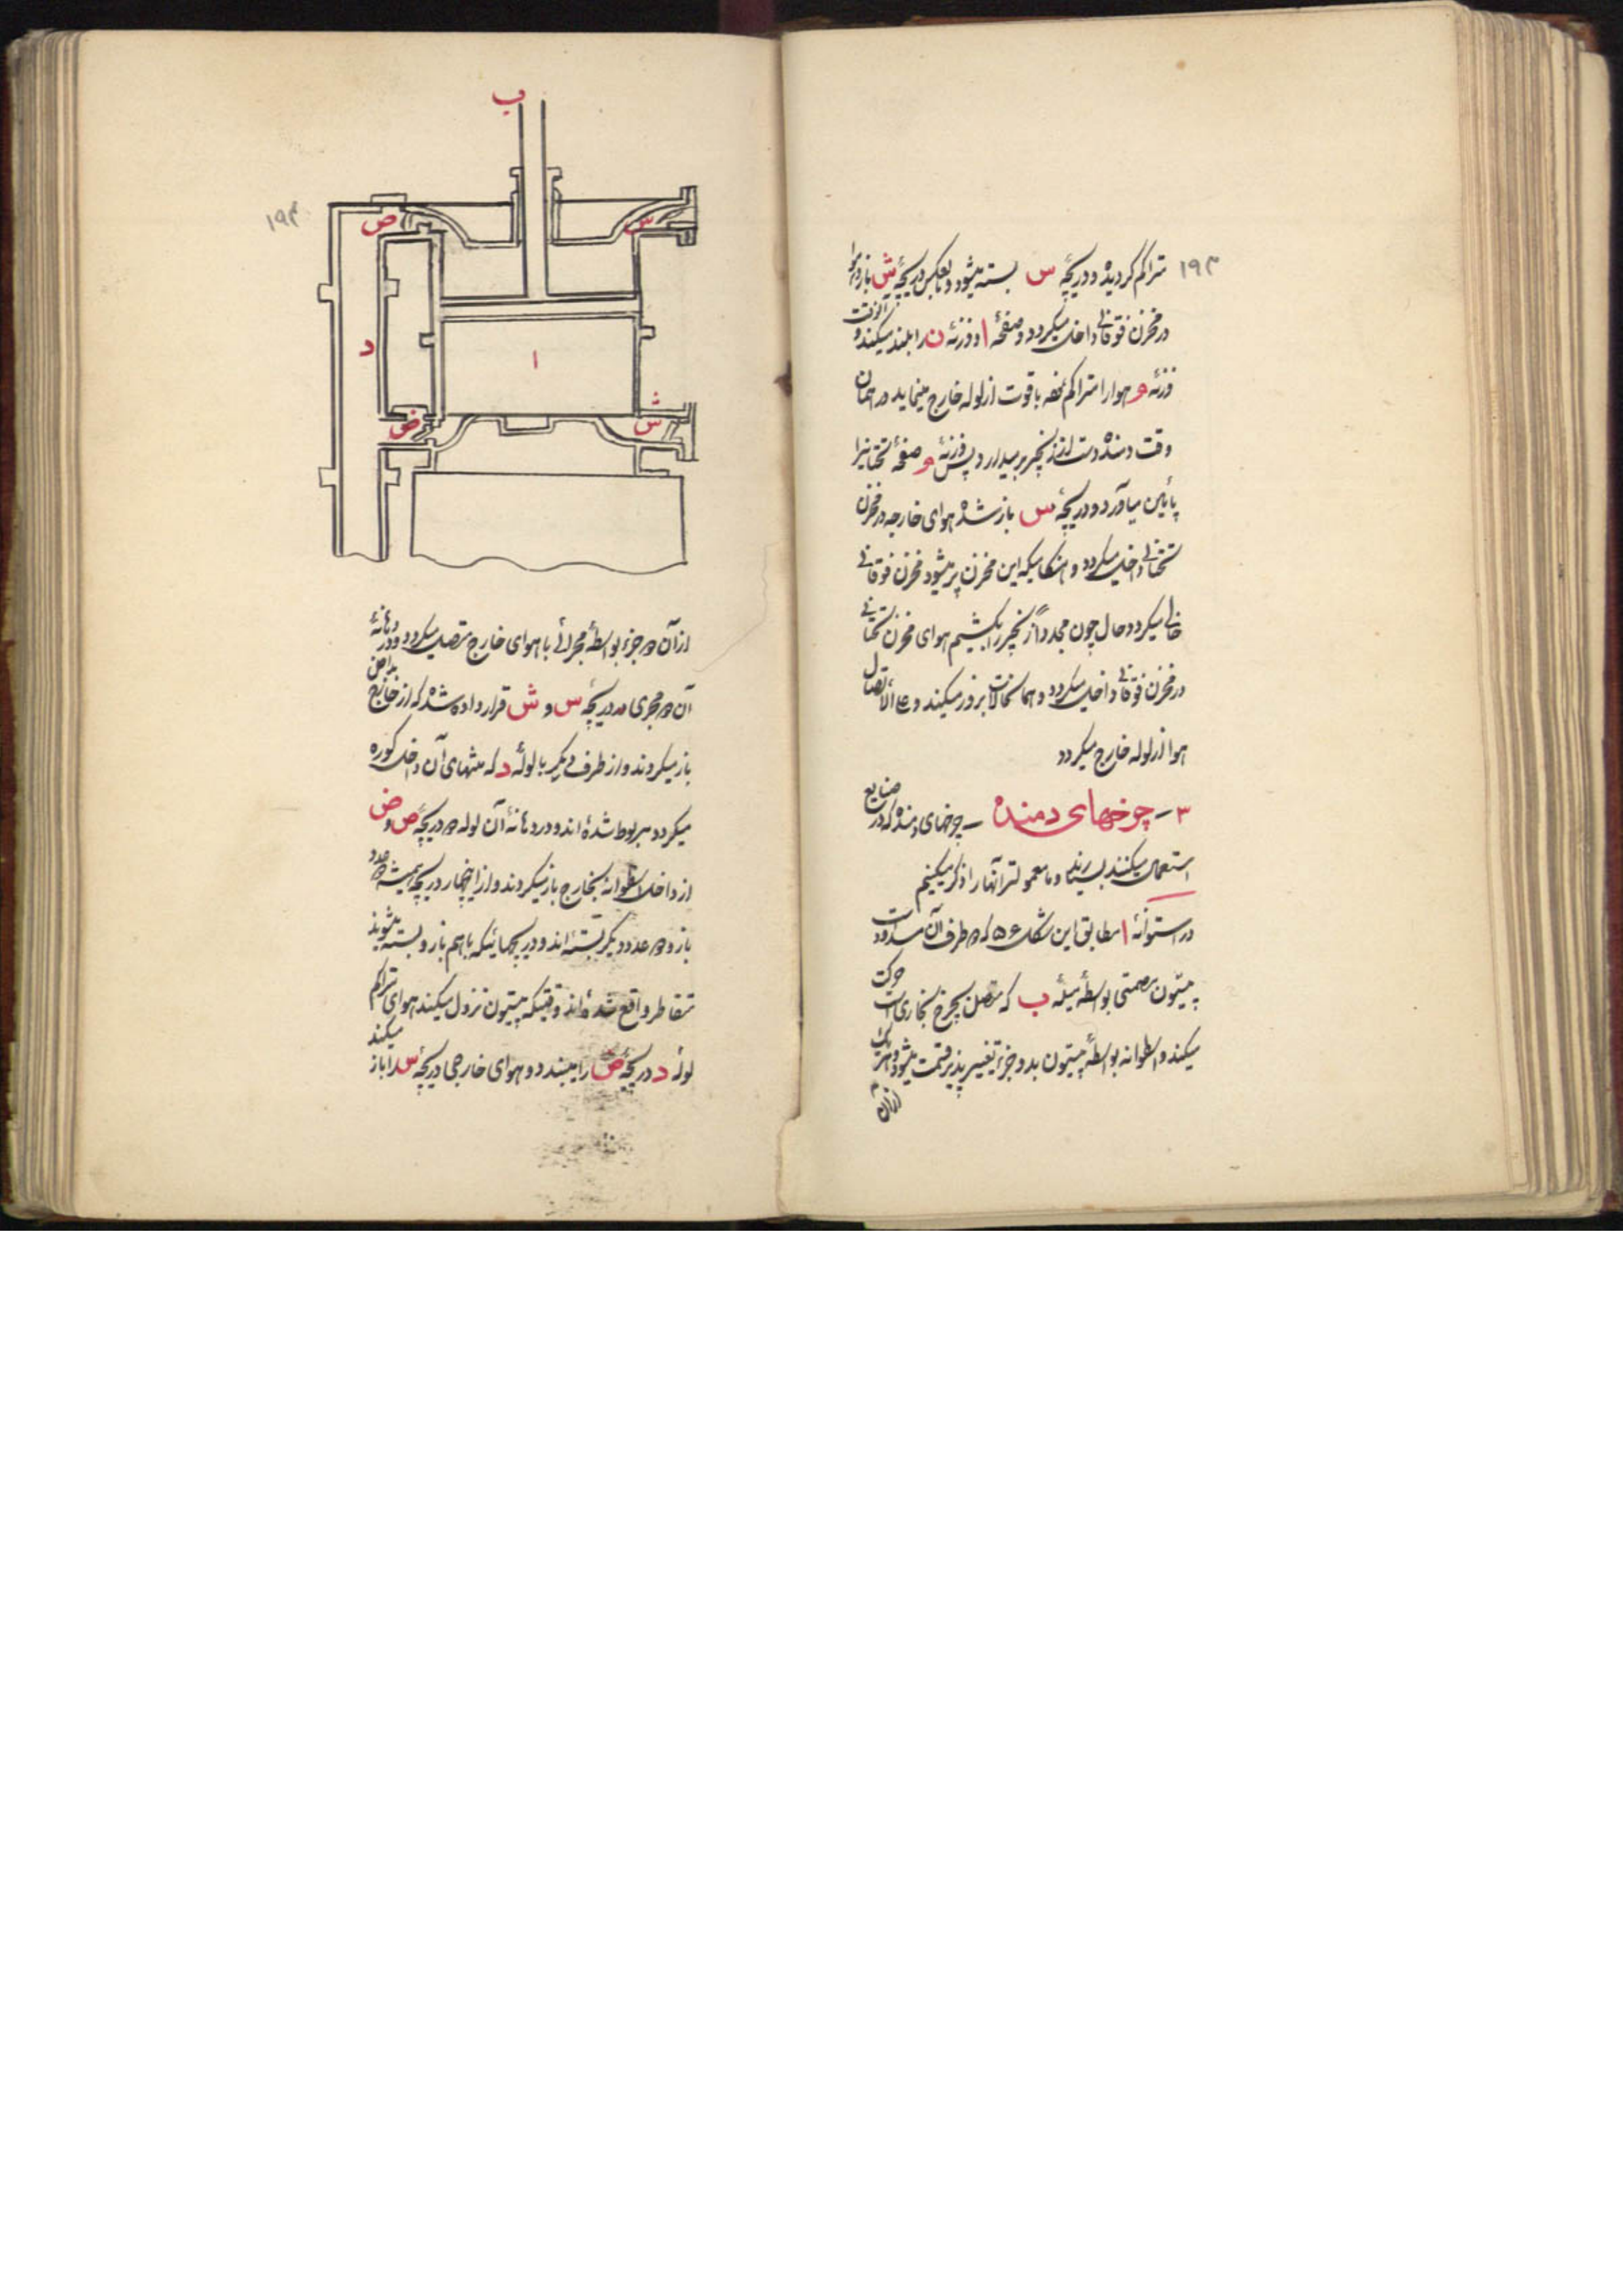 ۱۹۳
متراکم گردیده و دریچهٔ س بسته میشود و بعکس دریچهٔ ش باز و هوا
در مخزن فوقانی داخل میگردد و صفحهٔ ا و وزنهٔ ن را بلند میکند و آنوقت
وزنهٔ و هوا را متراکم نموده باقوت از لوله خارج مینماید در همان
وقت دمنده دست از زنجیر برمیدارد پس وزنهٔ و صفحهٔ تحتانی را
پائین میآورد و دریچهٔ س باز شده هوای خارجه در مخزن
تحتانی داخل میگردد و هنگامیکه این مخزن پر میشود مخزن فوقانی
خالی میگردد حال چون مجدداً زنجیر را بکشیم هوای مخزن تحتانی
در مخزن فوقانی داخل میگردد و همان حالات بروز میکند و علی الاتصال
هوا از لوله خارج میگردد
۳ – چرخهای دمنده – چرخهای دمنده که در صنایع
استعمال میکنند بسیارند و ما معمولتر آنها را ذکر میکنیم
در استوانهٔ ا مطابق این شکل ۵۶ که دو طرف آن مسدود است
پیستون مصمتی بواسطهٔ میلهٔ ب که متصل بچرخ بخاری است حرکت
میکند و اسطوانه بواسطهٔ پیستون بدو جزء تغییر پذیر قسمت میشود و هر یک
از آن
۱۹۴
ب
ص
س
د
ا
ض
ش
از آن دو جزء بواسطهٔ مجرائی با هوای خارج متصل میگردد و در دهانهٔ
آن دو مجری دو دریچهٔ س و ش قرار داده شده که از خارج بداخل
باز میگردند و از طرف دیگر با لولهٔ د که منتهای آن داخل کوره
میگردد مربوط شده اند و در دهانهٔ آن لوله دو دریچهٔ ص و ض
از داخل اسطوانه بخارج باز میگردند و از اینچهار دریچه همیشه دو عدد
باز و دو عدد دیگر بسته اند و دریچهائیکه باهم باز و بسته میشوند
متقاطر واقع شده اند وقتیکه پیستون نزول میکند هوای متراکم
لولهٔ د دریچهٔ ص را میبندد و هوای خارجی دریچهٔ س را باز میکند